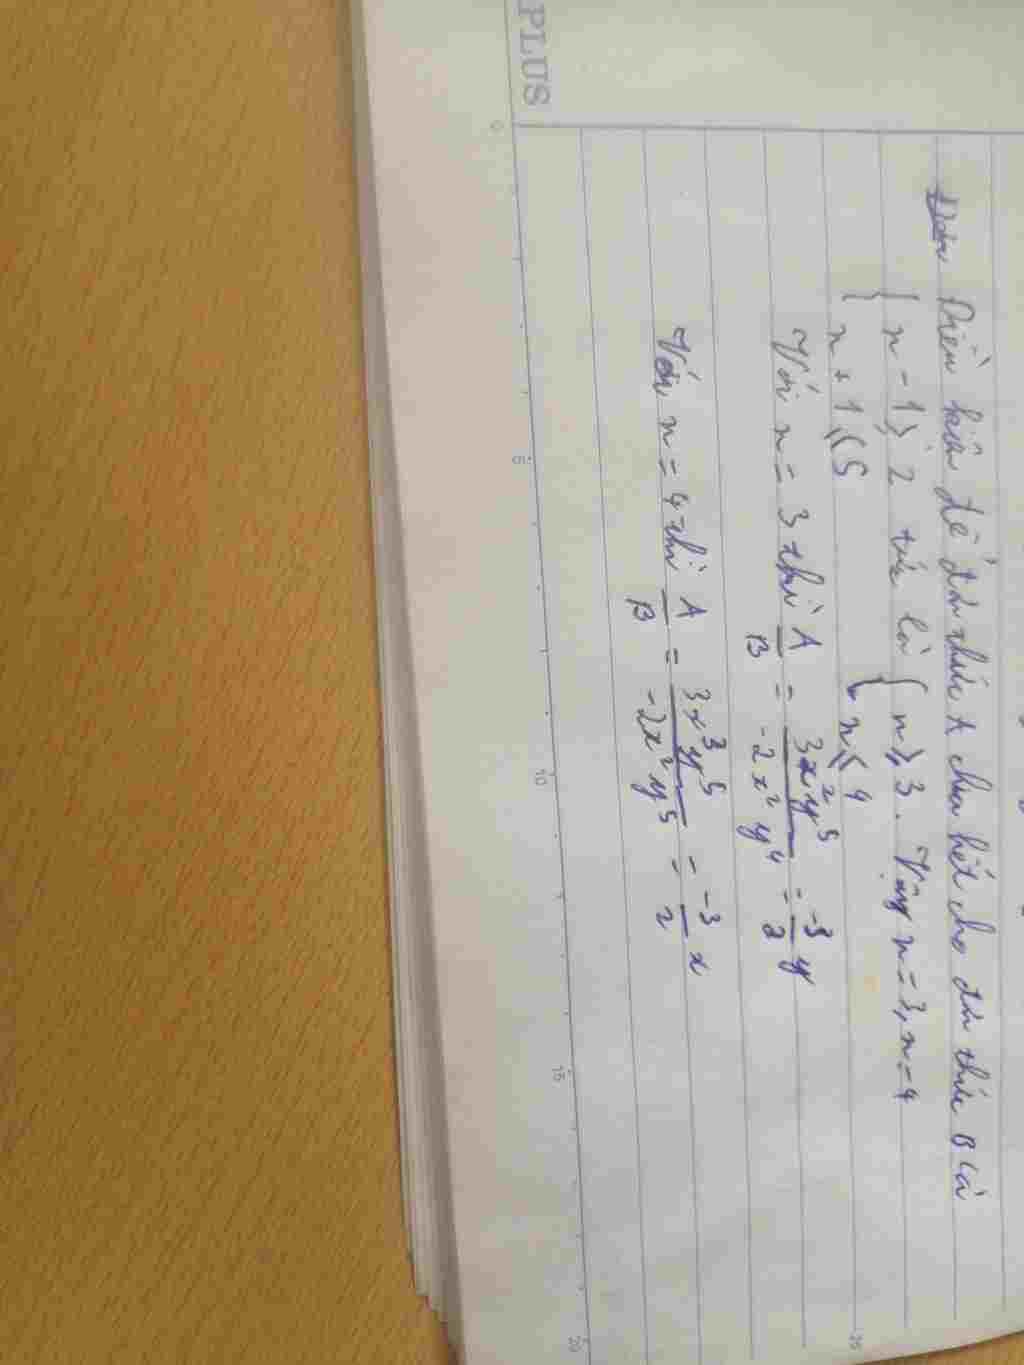 PLUS
Điều kiện để đơn thức A chia hết cho đơn thức B là
{ n - 1 ⩾ 2 tức là { n ⩾ 3. Vậy n = 3, n = 4
{ n + 1 ⩽ 5 { n ⩽ 4
Với n = 3 thì A/B = 3x²y⁵/-2x²y⁴ = -3/2 y
Với n = 4 thì A/B = 3x³y⁵/-2x²y⁵ = -3/2 x
0 5 10 15 20
25